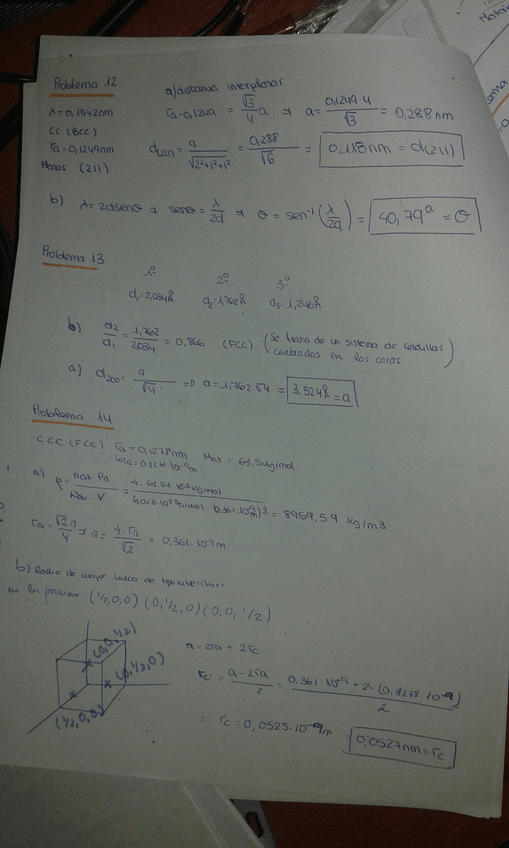 Problema 12
a) distancia interplanar
λ = 0,1542nm
ra = 0,1249 = √3/4 a → a = 0,1249·4/√3 = 0,288 nm
CC (BCC)
ra = 0,1249nm
Planos (211)
d211 = a/√2²+1²+1² = 0,288/√6 = 0,118nm = d(211)
b) λ = 2dsenθ → senθ = λ/2d → θ = sen⁻¹(λ/2d) = 40,79º = θ
Problema 13
1º 2º 3º
d1 = 2,034Å d2 = 1,762Å d3 = 1,246Å
b) d2/d1 = 1,762/2,034 = 0,866 (FCC) (Se trata de un sistema de celdillas centradas en las caras)
a) d200 = a/√4 => a = 1,762 √4 = 3,524Å = a
Problema 14
CCC (FCC) ra = 0,1278nm Mat = 63,54g/mol
a) ρ = nat Pa/Nav. V = 4·63,54·10⁻³kg/mol / 6,023·10²³at/mol (0,361·10⁻⁹m)³ = 8959,59 kg/m3
ra = √2a/4 → a = 4·ra/√2 = 0,361·10⁻⁹m
b) Radio de mayor hueco de tipo
(1/2,0,0) (0,1/2,0) (0,0,1/2)
(0,0,1/2)
(0,1/2,0)
(1/2,0,0)
a = 2ra + 2rc
rc = a-2ra/2 = 0,361·10⁻⁹-2·(0,1278·10⁻⁹)/2
= rc = 0,0525·10⁻⁹m 0,0527nm = rc